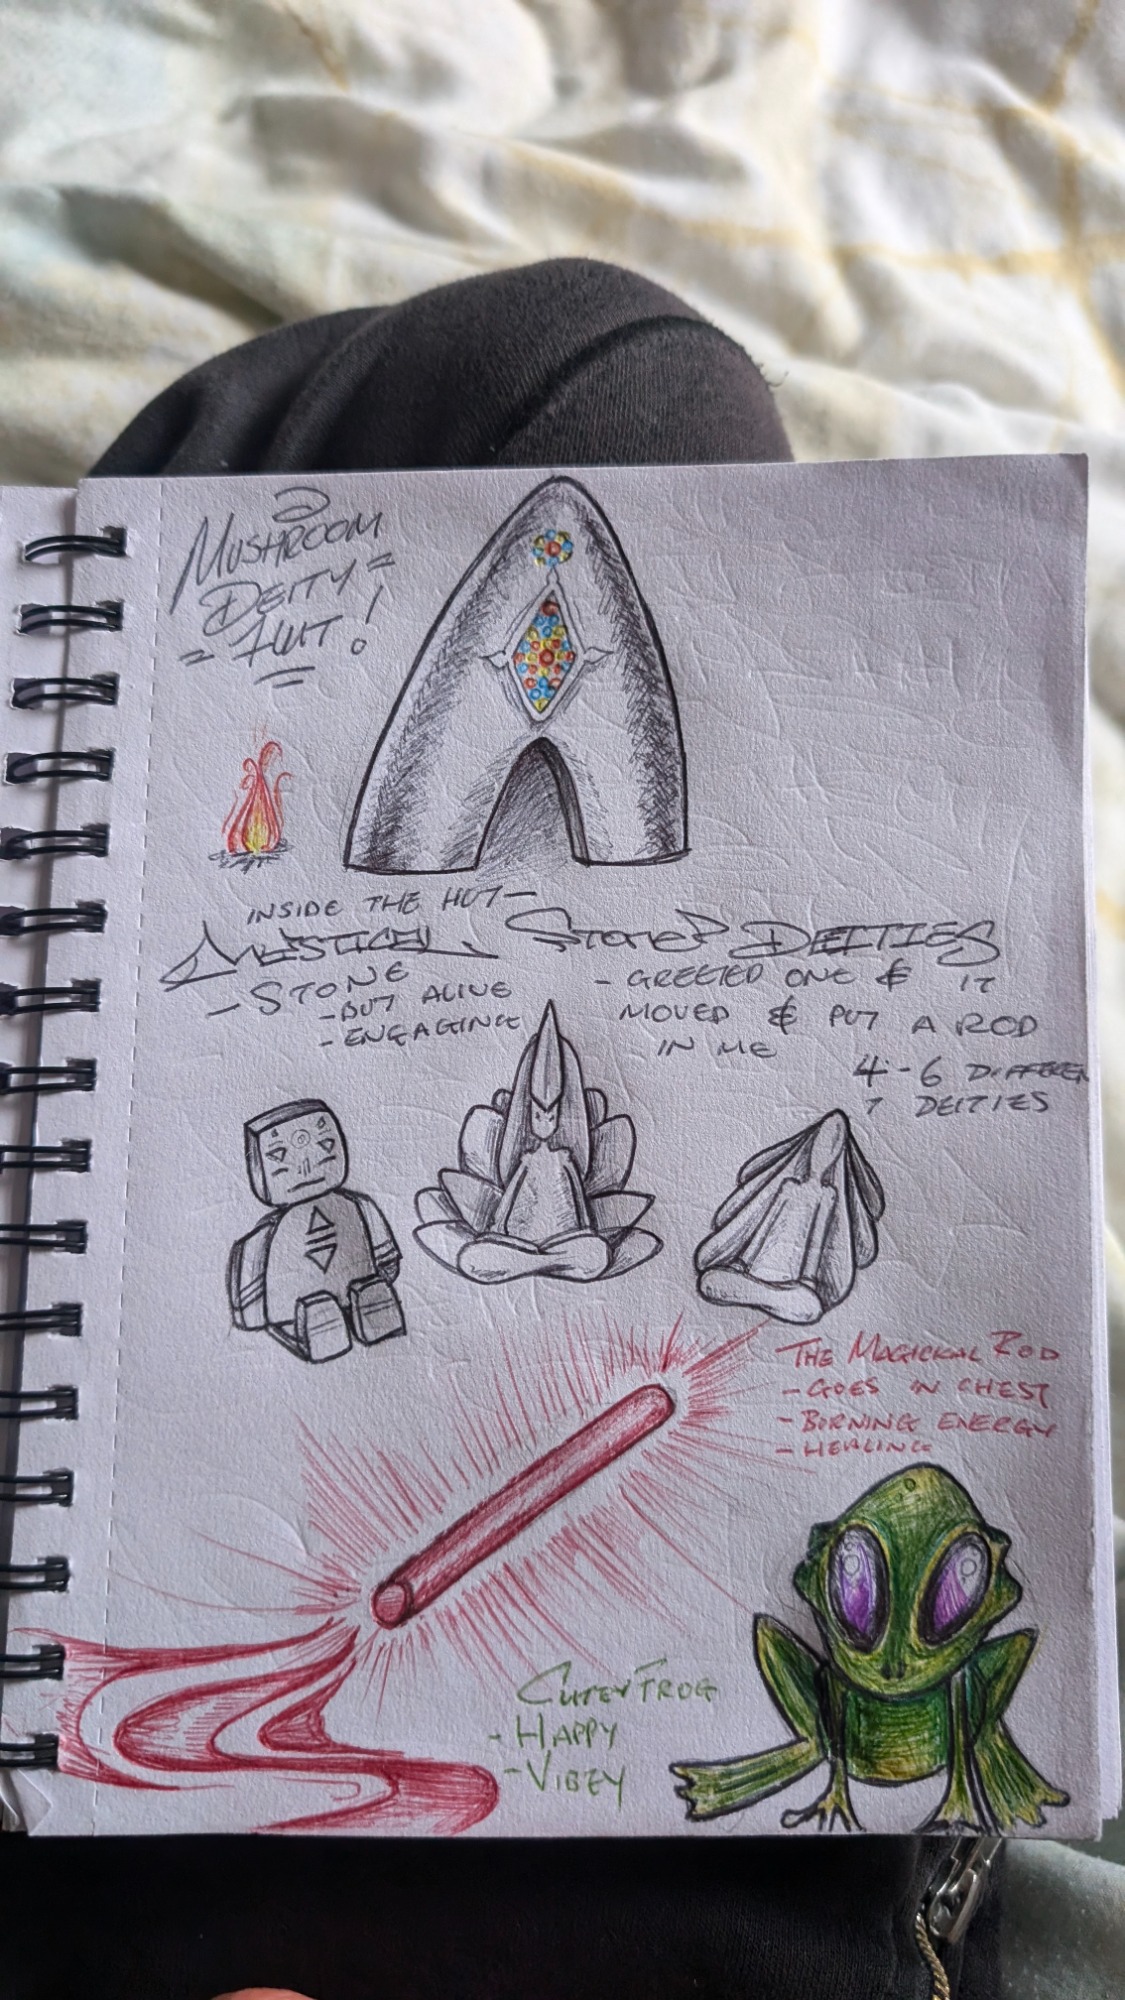 MUSHROOM
DEITY =
= HUT!
INSIDE THE HUT —
MYSTICAL STONE DEITIES
- STONE
- BUT ALIVE
- ENGAGING
- GREETED ONE & IT
MOVED & PUT A ROD
IN ME
4-6 DIFFEREN
T DEITIES
THE MAGICKAL ROD
- GOES IN CHEST
- BURNING ENERGY
- HEALING
CUTEY FROG
- HAPPY
- VIBEY